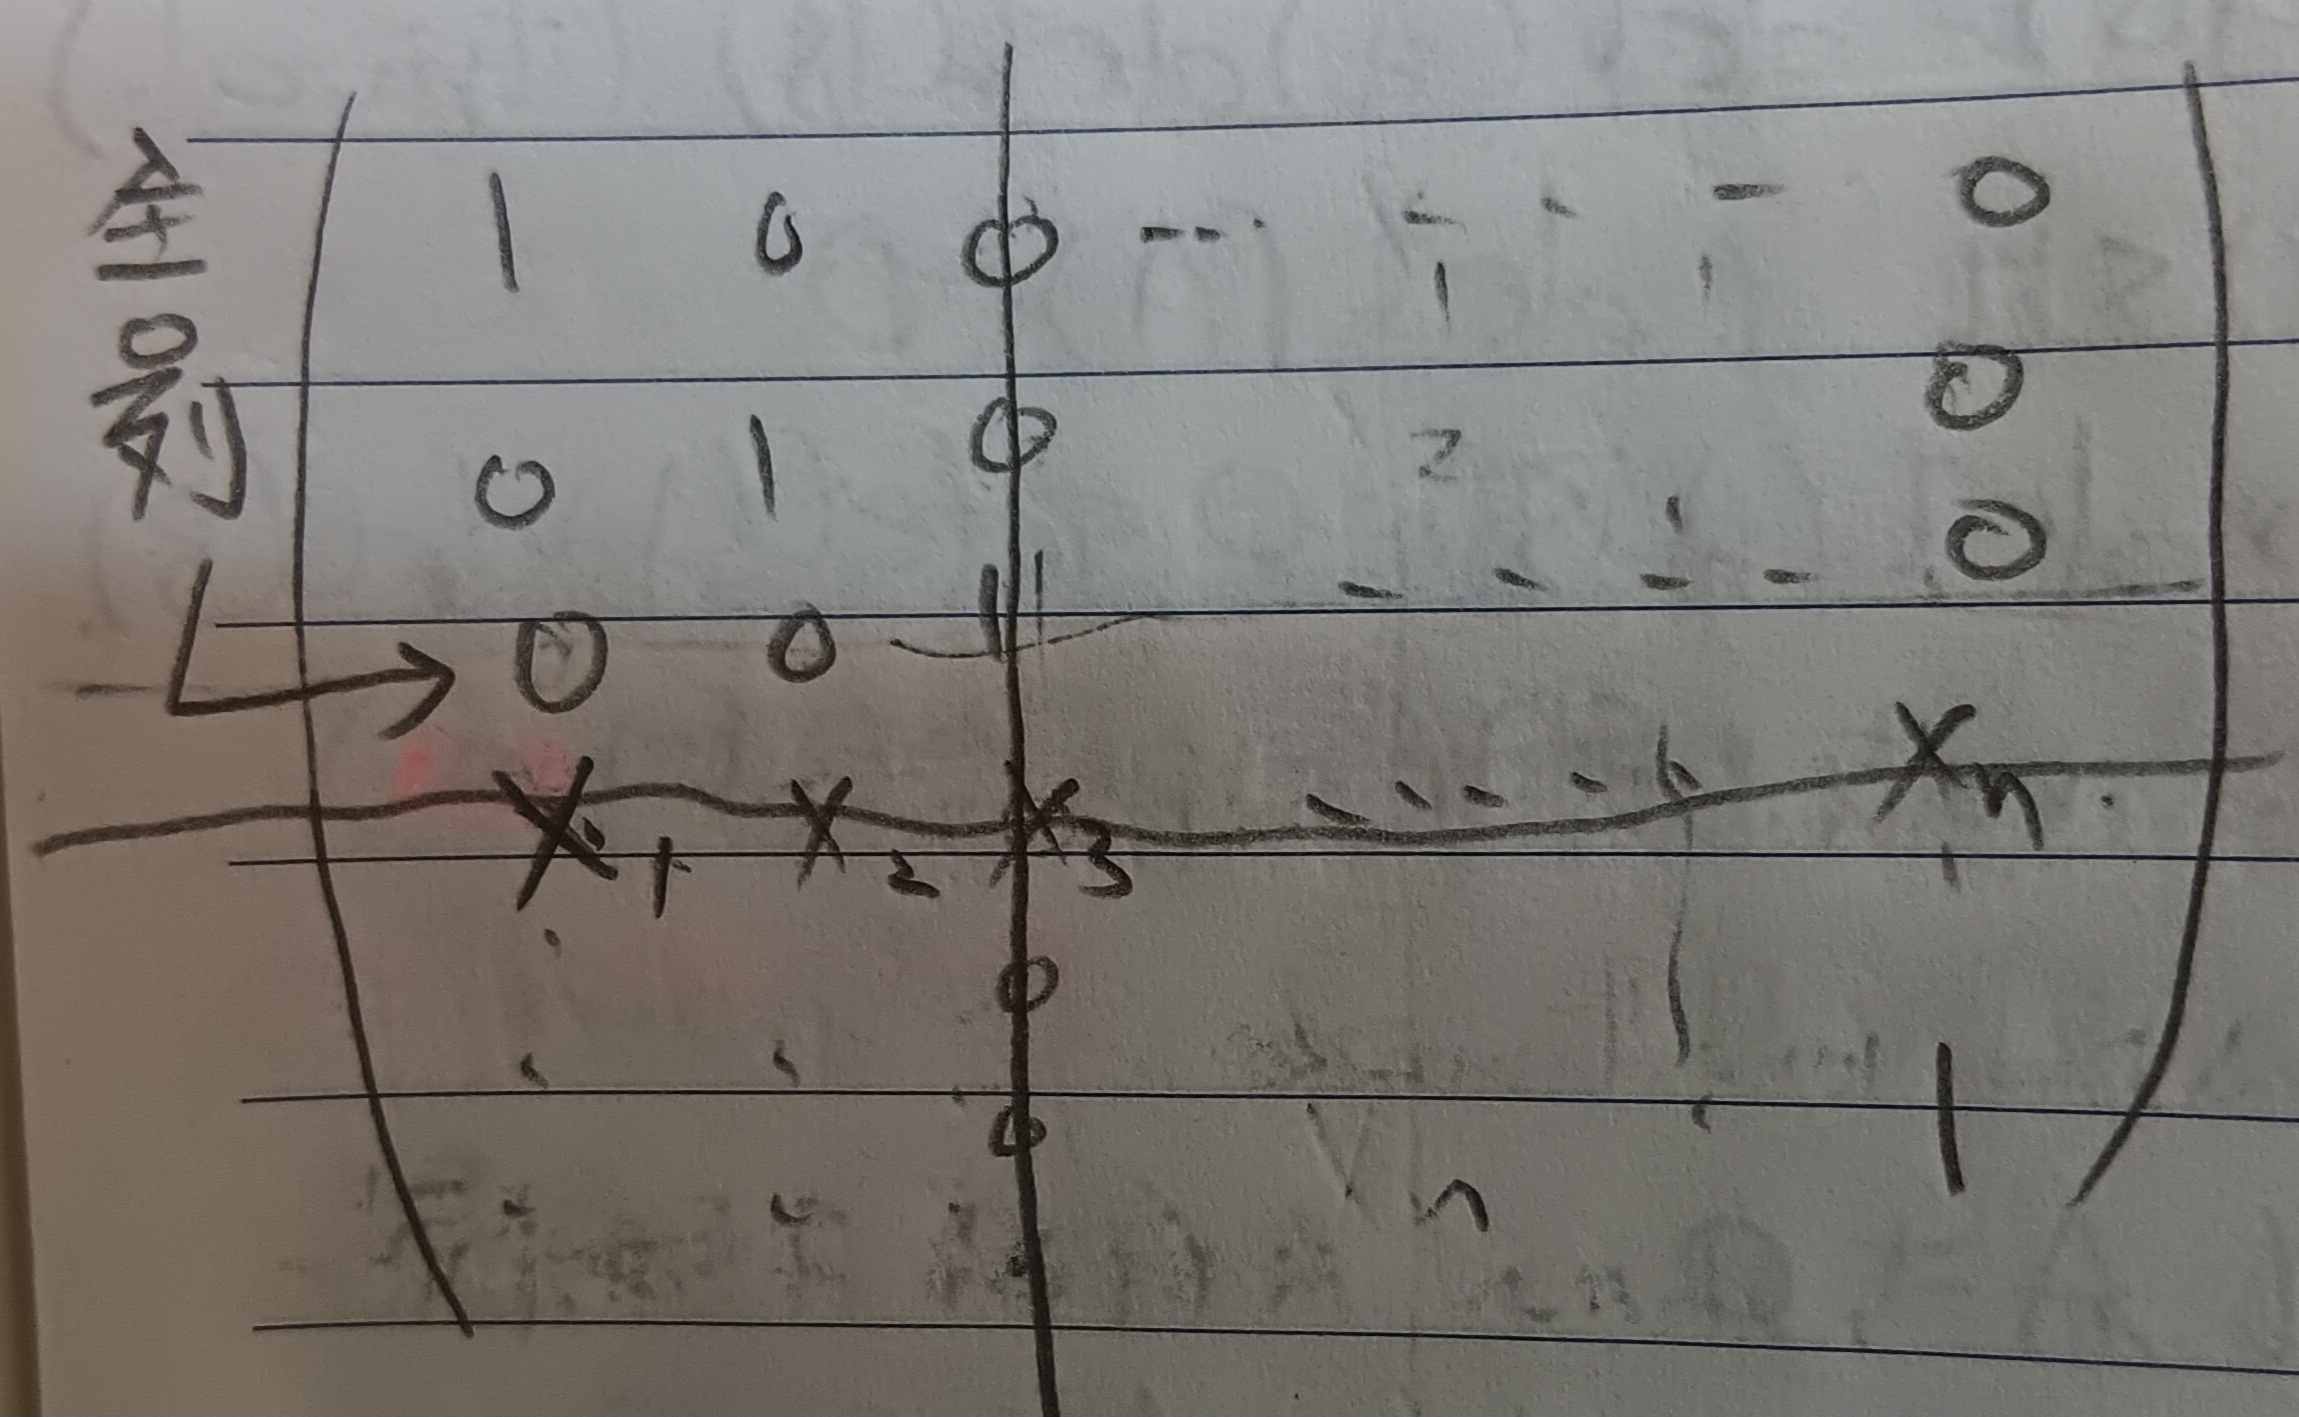 全0列
1 0 0 --- - - - 0
0 1 0 0
0 0 - - - - 0
X1 X2 X3 - - - - Xn
0
0 1